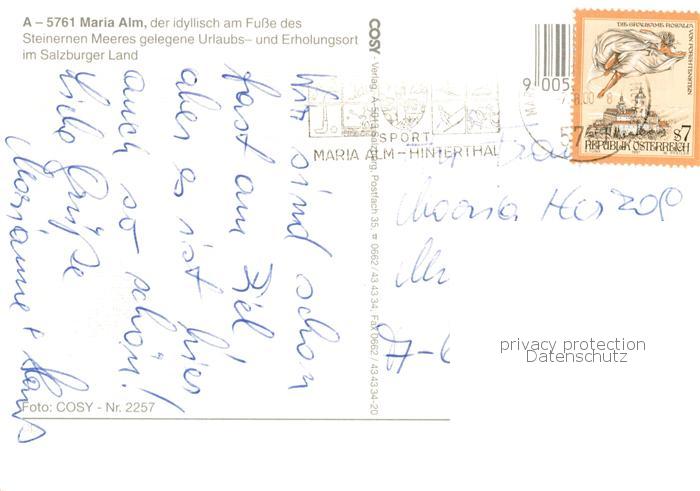 A – 5761 Maria Alm, der idyllisch am Fuße des
Steinernen Meeres gelegene Urlaubs– und Erholungsort
im Salzburger Land
Wir sind schon
fast am Ziel
aber es ist hier
auch so schön!
Liebe Grüße
Marianne + Hans
Foto: COSY - Nr. 2257
COSY - Verlag, A-5013 Salzburg, Postfach 35, ☎ 0662/43 43 34, Fax 0662/43 43 34-20
SPORT
MARIA ALM–HINTERTHAL
9 005
DIE GRAUSAME ROSALIA VON FORCHTENSTEIN
S7
REPUBLIK ÖSTERREICH
Maria Herzog
privacy protection
Datenschutz